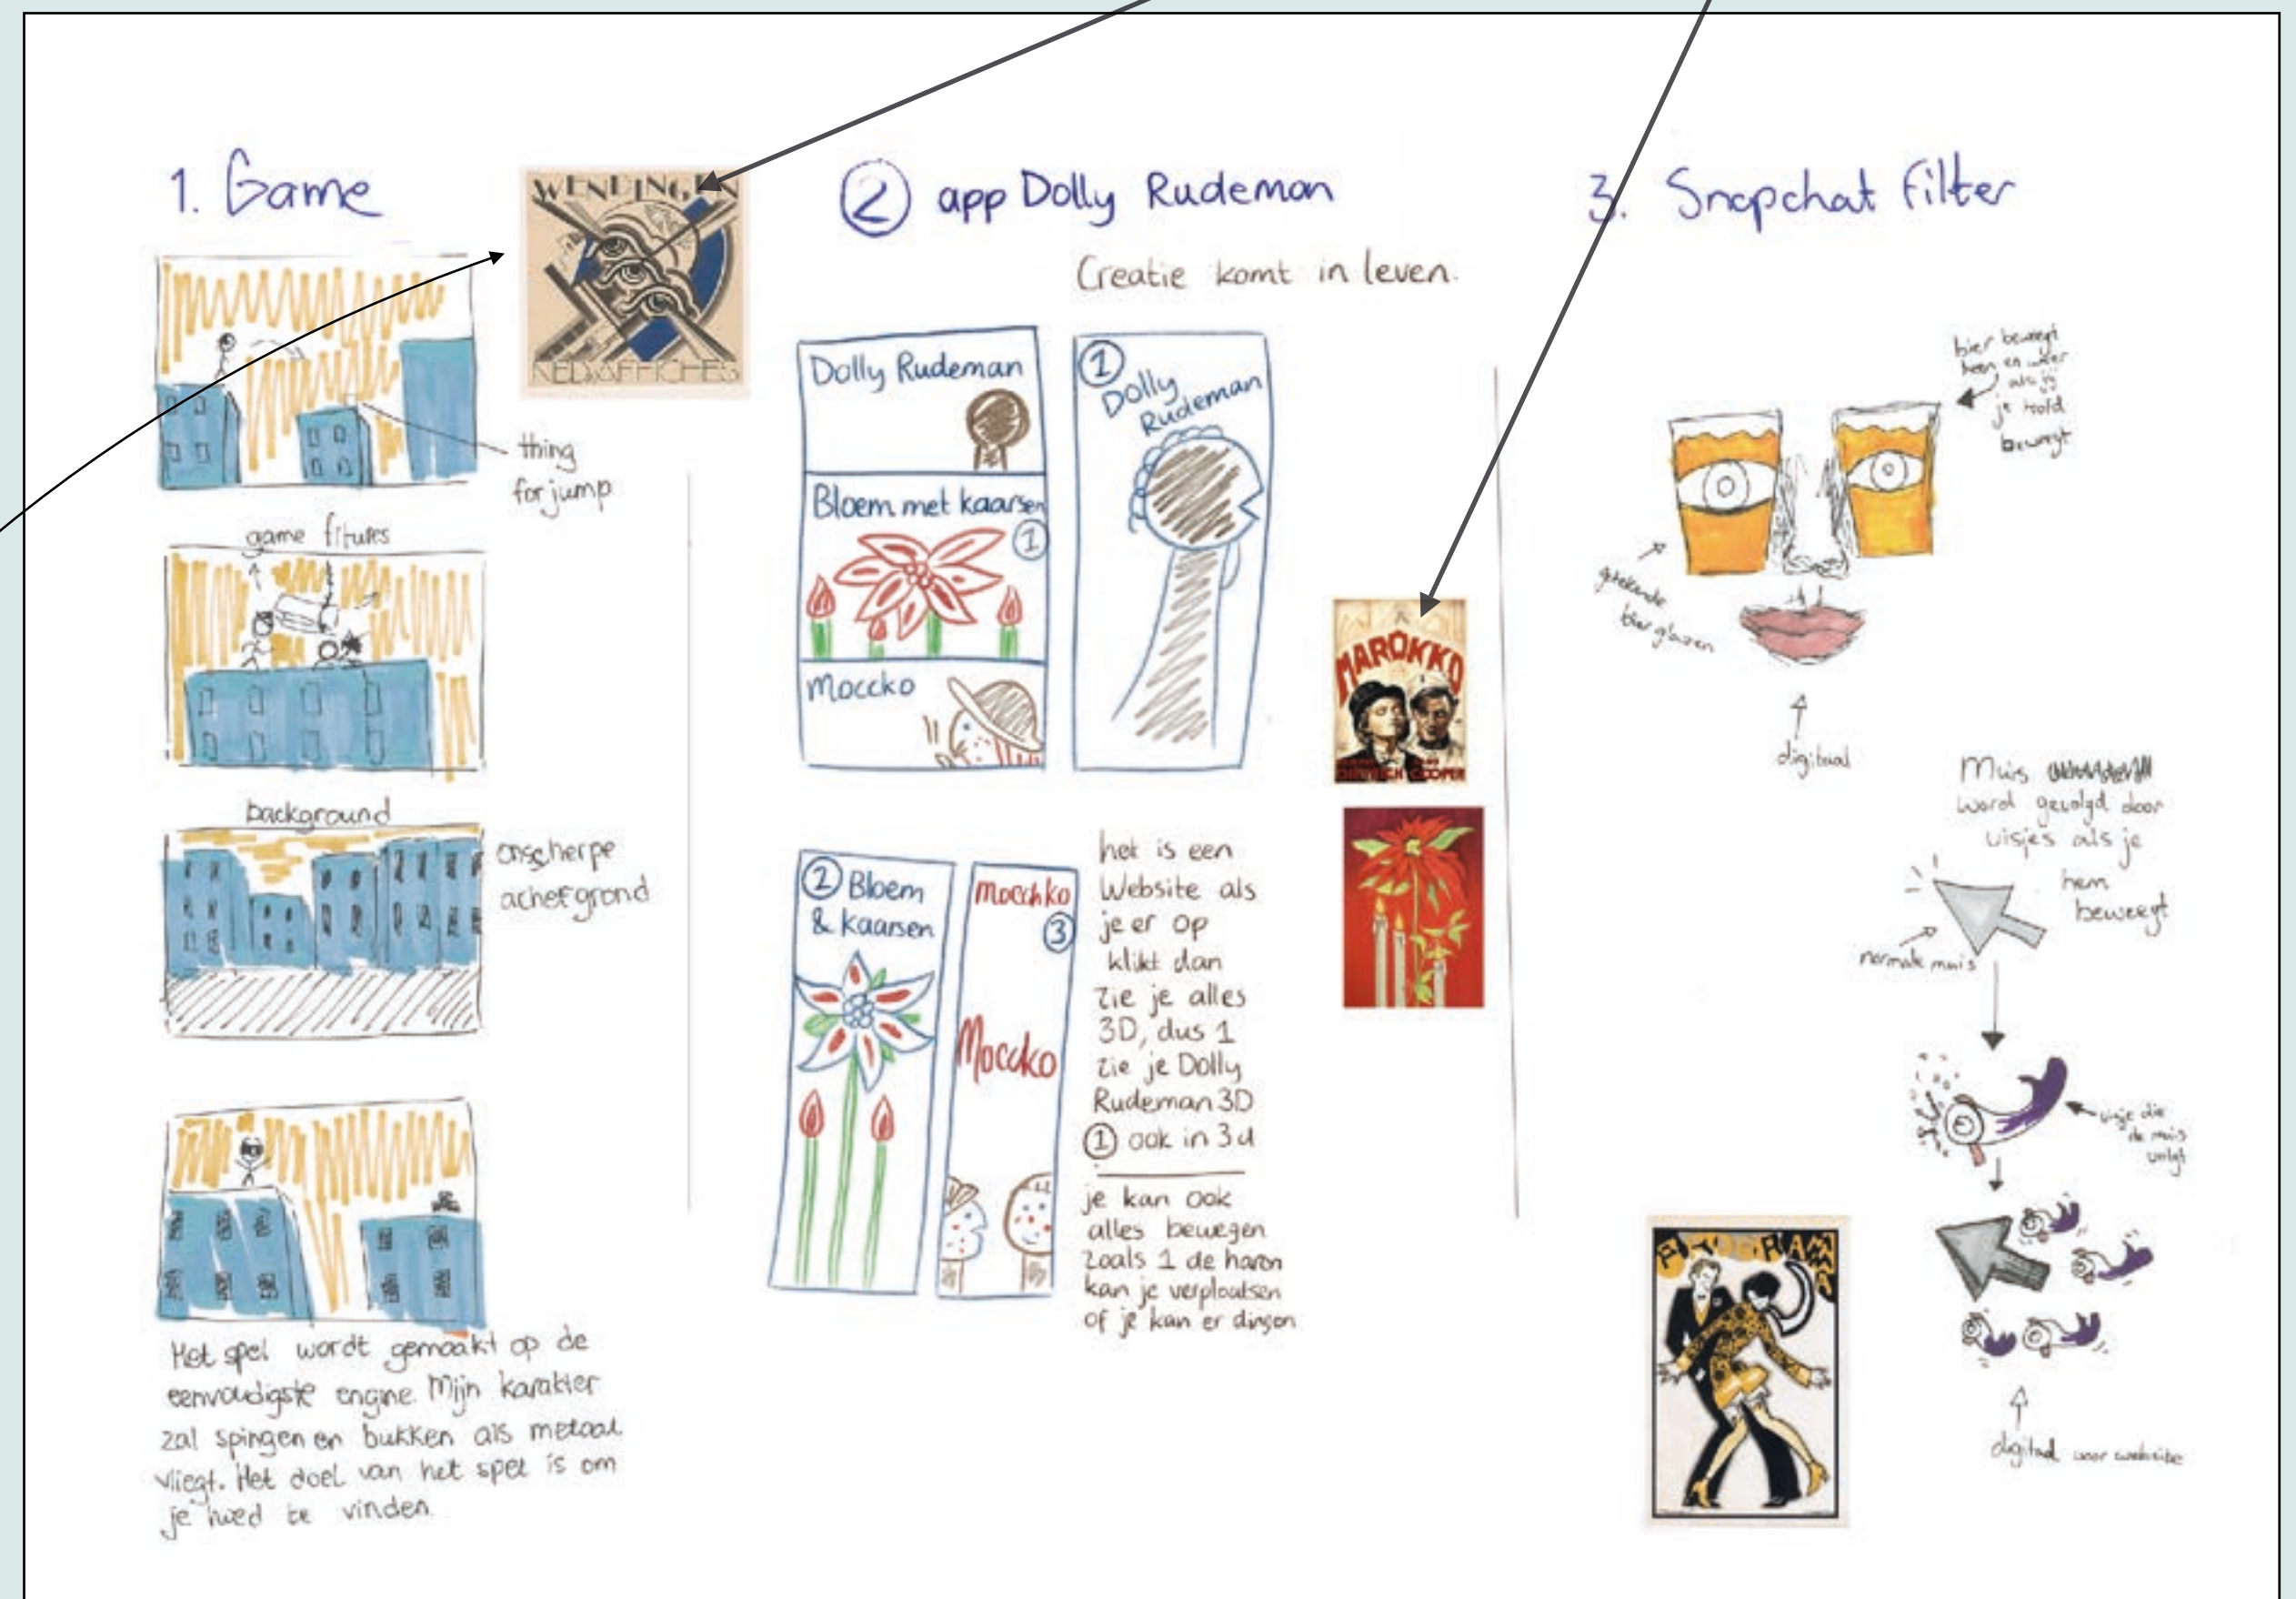 1. Game
WENDINGEN
NED. AFFICHES
thing
for jump
game fitures
background
onscherpe
achefgrond
Het spel wordt gemaakt op de
eenvoudigste engine. Mijn karakter
zal spingen en bukken als metaal
vliegt. Het doel van het spel is om
je hoed te vinden.
2 app Dolly Rudeman
Creatie komt in leven.
Dolly Rudeman
Bloem met kaarsen
1
Moccko
1
Dolly
Rudeman
2 Bloem
& Kaarsen
Mocchko
3
Moccko
het is een
Website als
je er op
klikt dan
zie je alles
3D, dus 1
zie je Dolly
Rudeman 3D
1 ook in 3d
je kan ook
alles bewegen
zoals 1 de haren
kan je verplaatsen
of je kan er dingen
MAROKKO
DIETRICH COOPER
3. Snapchat filter
bier beweegt
heen en weer
als jij
je hoofd
beweegt
getekende
bier glazen
digitaal
Muis
word gevolgd door
visjes als je
hem
beweegt
normale muis
visje die
de muis
volgt
digitaal voor website
PROGRAMMA